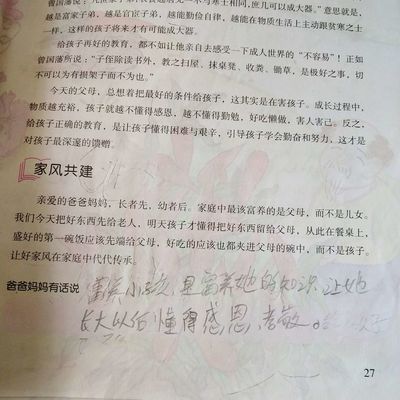 曾国藩说:“凡世家子弟,衣食起居无一不与寒士相同,庶几可以成大器。”意思就是,
越是富家子弟,越是官宦子弟,越能勤俭自律,越能在物质生活上主动跟贫寒之士
一样,这样的孩子将来才有可能成大器。
给孩子再好的教育,都不如让他亲自去感受一下成人世界的“不容易”!正如
曾国藩所说:“子侄除读书外,教之扫屋、抹桌凳、收粪、锄草,是极好之事,切
不可以为有损架子而不为也。”
今天的父母,总想着把最好的条件给孩子,这其实是在害孩子。成长过程中,
物质越充裕,孩子就越不懂得感恩,越不懂得勤勉,好吃懒做,害人害己。反之,
给孩子正确的教育,是让孩子懂得困难与艰辛,引导孩子学会勤奋和努力,这才是
对孩子最深邃的馈赠。
家风共建
亲爱的爸爸妈妈,长者先,幼者后。家庭中最该富养的是父母,而不是儿女。
我们今天把好东西先给老人,明天孩子才懂得把好东西留给父母,从此在餐桌上,
盛好的第一碗饭应该先端给父母,好吃的应该也都夹进父母的碗中,而不是孩子。
让好家风在家庭中代代传承。
爸爸妈妈有话说 富养小孩,是富养她的知识,让她
长大以后懂得感恩,孝敬。
27